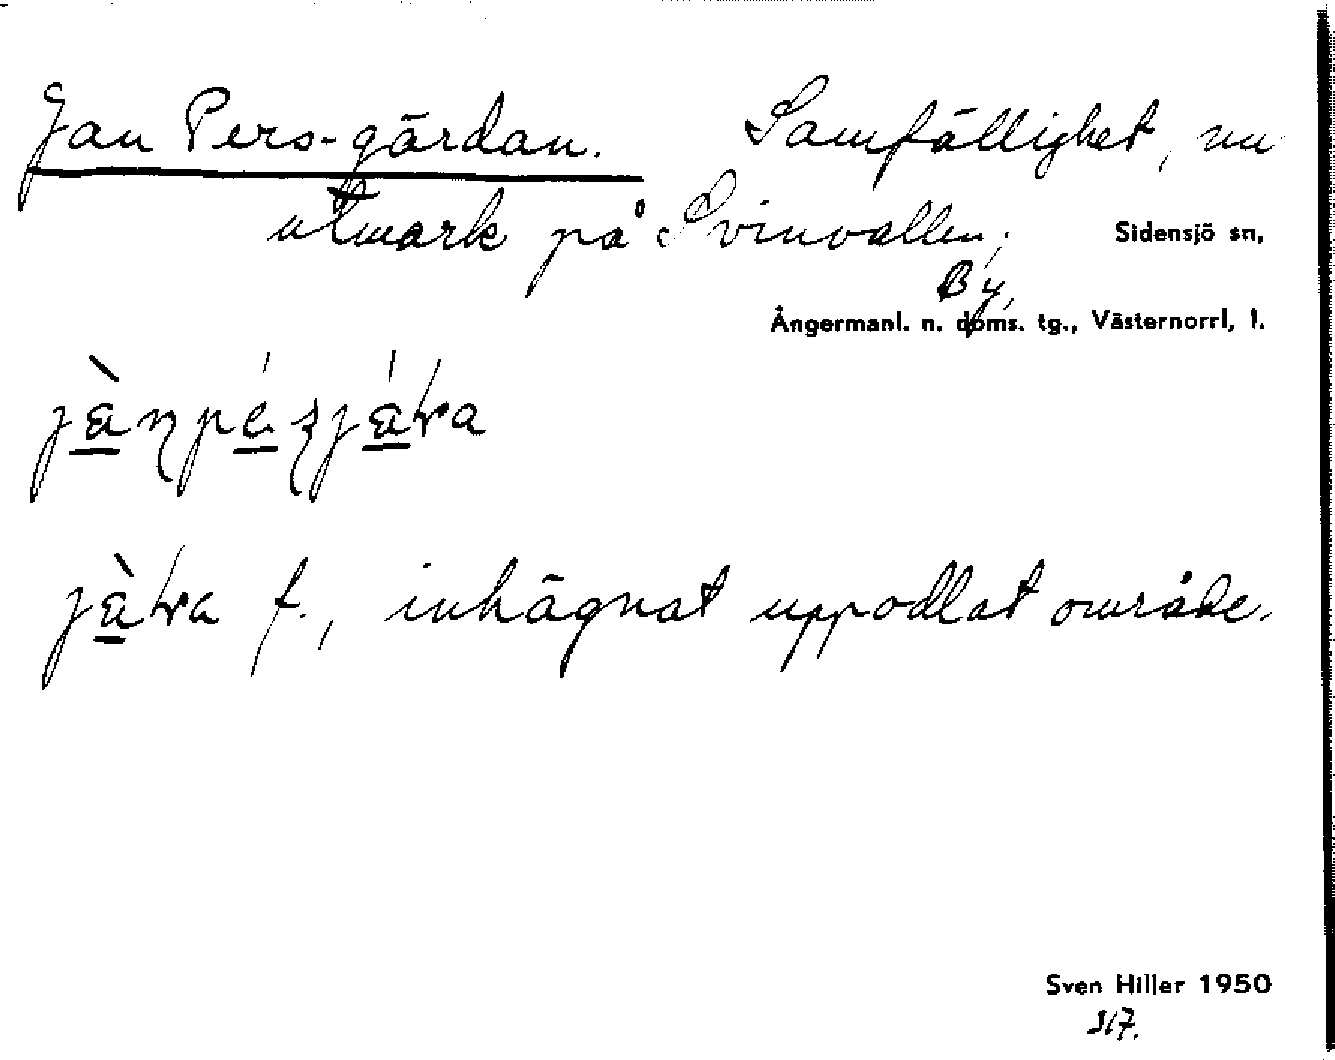 Jan Pers-gärdan. Samfällighet, nu
utmark på Svinvallen, Sidensjö sn,
By,
Ångermanl. n. doms. tg., Västernorrl, l.
f., inhägnat uppodlat område.
Sven Hiller 1950
317.